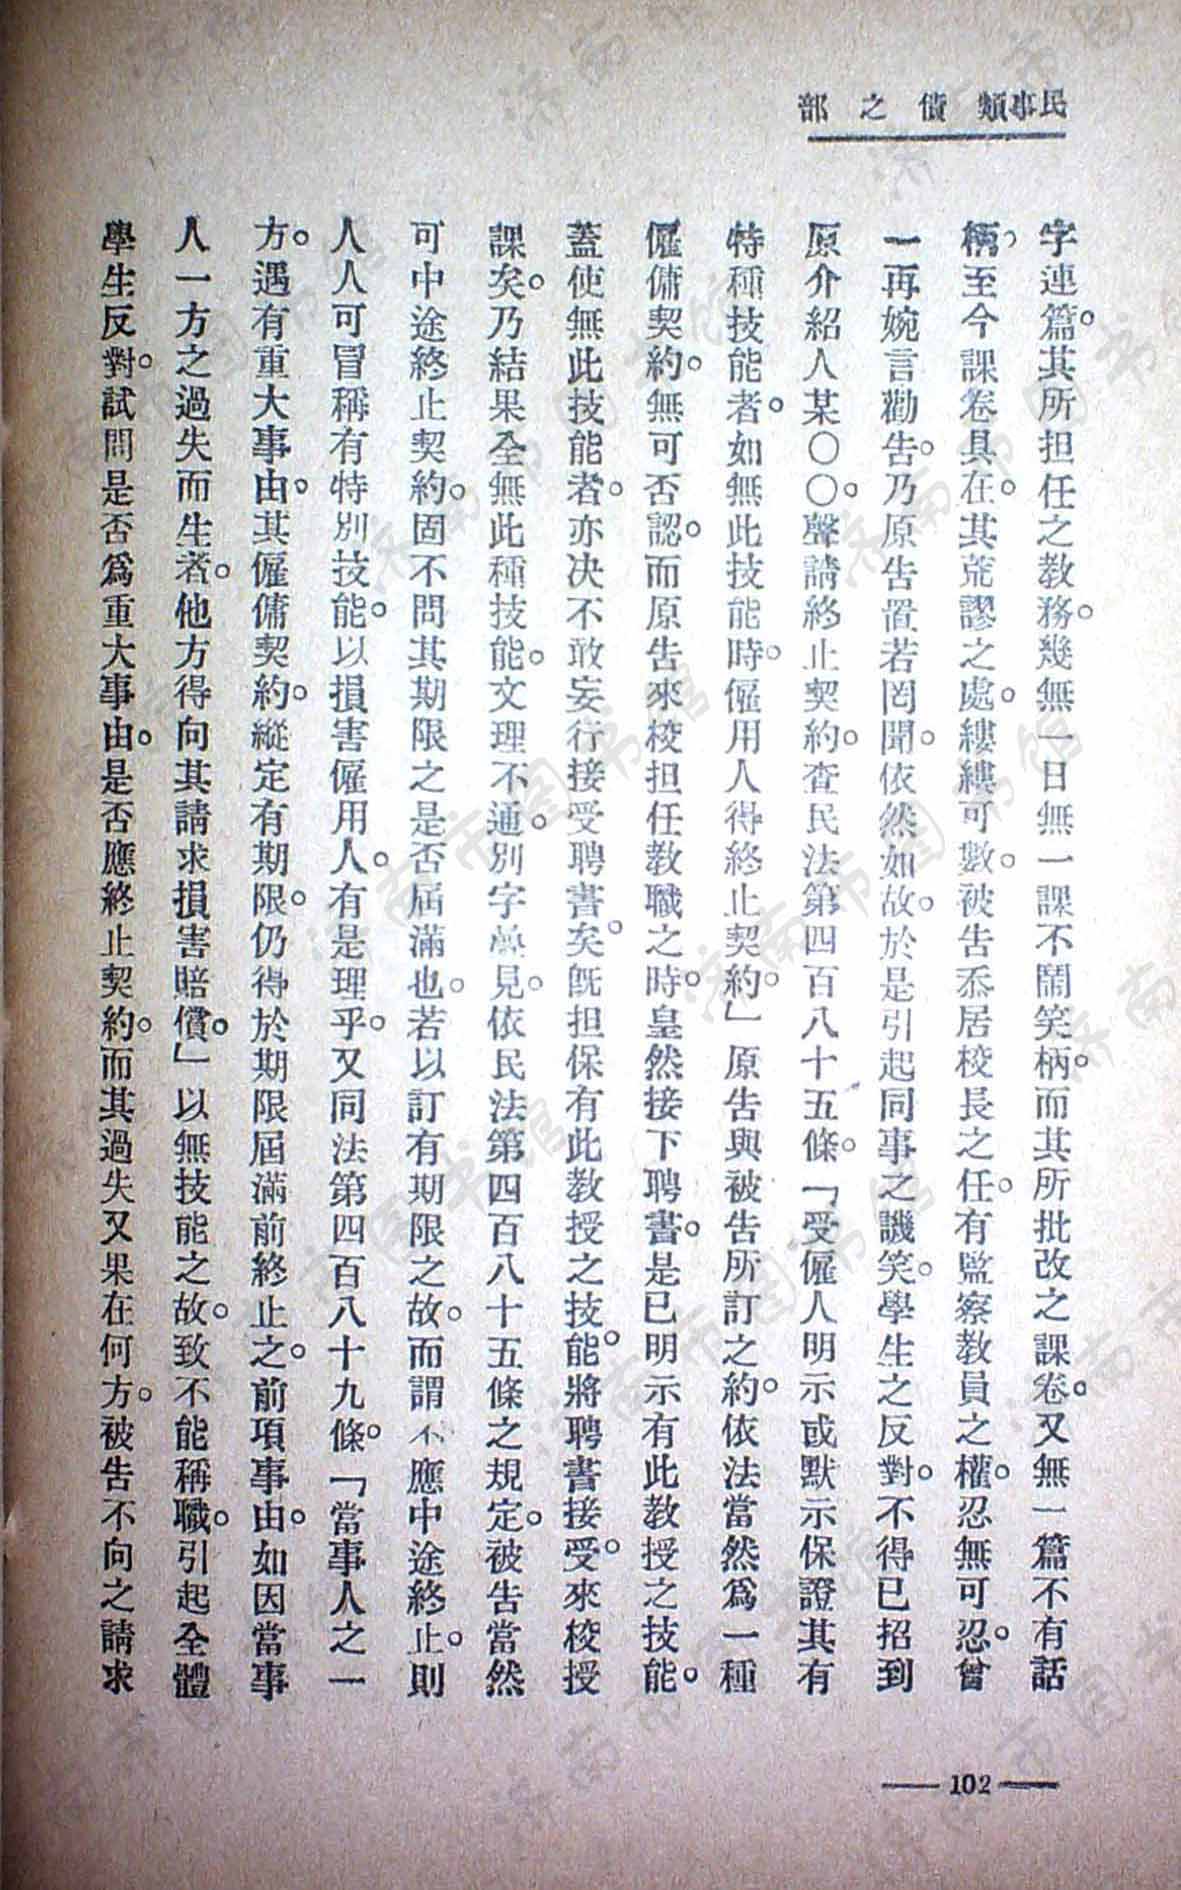 民事類 債之部
字連篇。其所担任之教務。幾無一日無一課不鬧笑柄。而其所批改之課卷。又無一篇不有話
柄、至今課卷具在。其荒謬之處。縷縷可數。被告忝居校長之任。有監察教員之權。忍無可忍。曾
一再婉言勸告。乃原告置若罔聞。依然如故。於是引起同事之譏笑。學生之反對。不得已招到
原介紹人某〇〇。聲請終止契約。查民法第四百八十五條。「受僱人明示或默示保證其有
特種技能者。如無此技能時。僱用人得終止契約。」原告與被告所訂之約。依法當然爲一種
僱傭契約。無可否認。而原告來校担任教職之時。皇然接下聘書。是已明示有此教授之技能。
蓋使無此技能者。亦决不敢妄行接受聘書矣。既担保有此教授之技能。將聘書接受。來校授
課矣。乃結果全無此種技能。文理不通。別字疊見。依民法第四百八十五條之規定。被告當然
可中途終止契約。固不問其期限之是否屆滿也。若以訂有期限之故。而謂不應中途終止。則
人人可冒稱有特別技能。以損害僱用人。有是理乎。又同法第四百八十九條。「當事人之一
方。遇有重大事由。其僱傭契約。縱定有期限。仍得於期限屆滿前終止之。前項事由。如因當事
人一方之過失而生者。他方得向其請求損害賠償。」以無技能之故。致不能稱職。引起全體
學生反對。試問是否爲重大事由。是否應終止契約。而其過失又果在何方。被告不向之請求
102
济南市图书馆